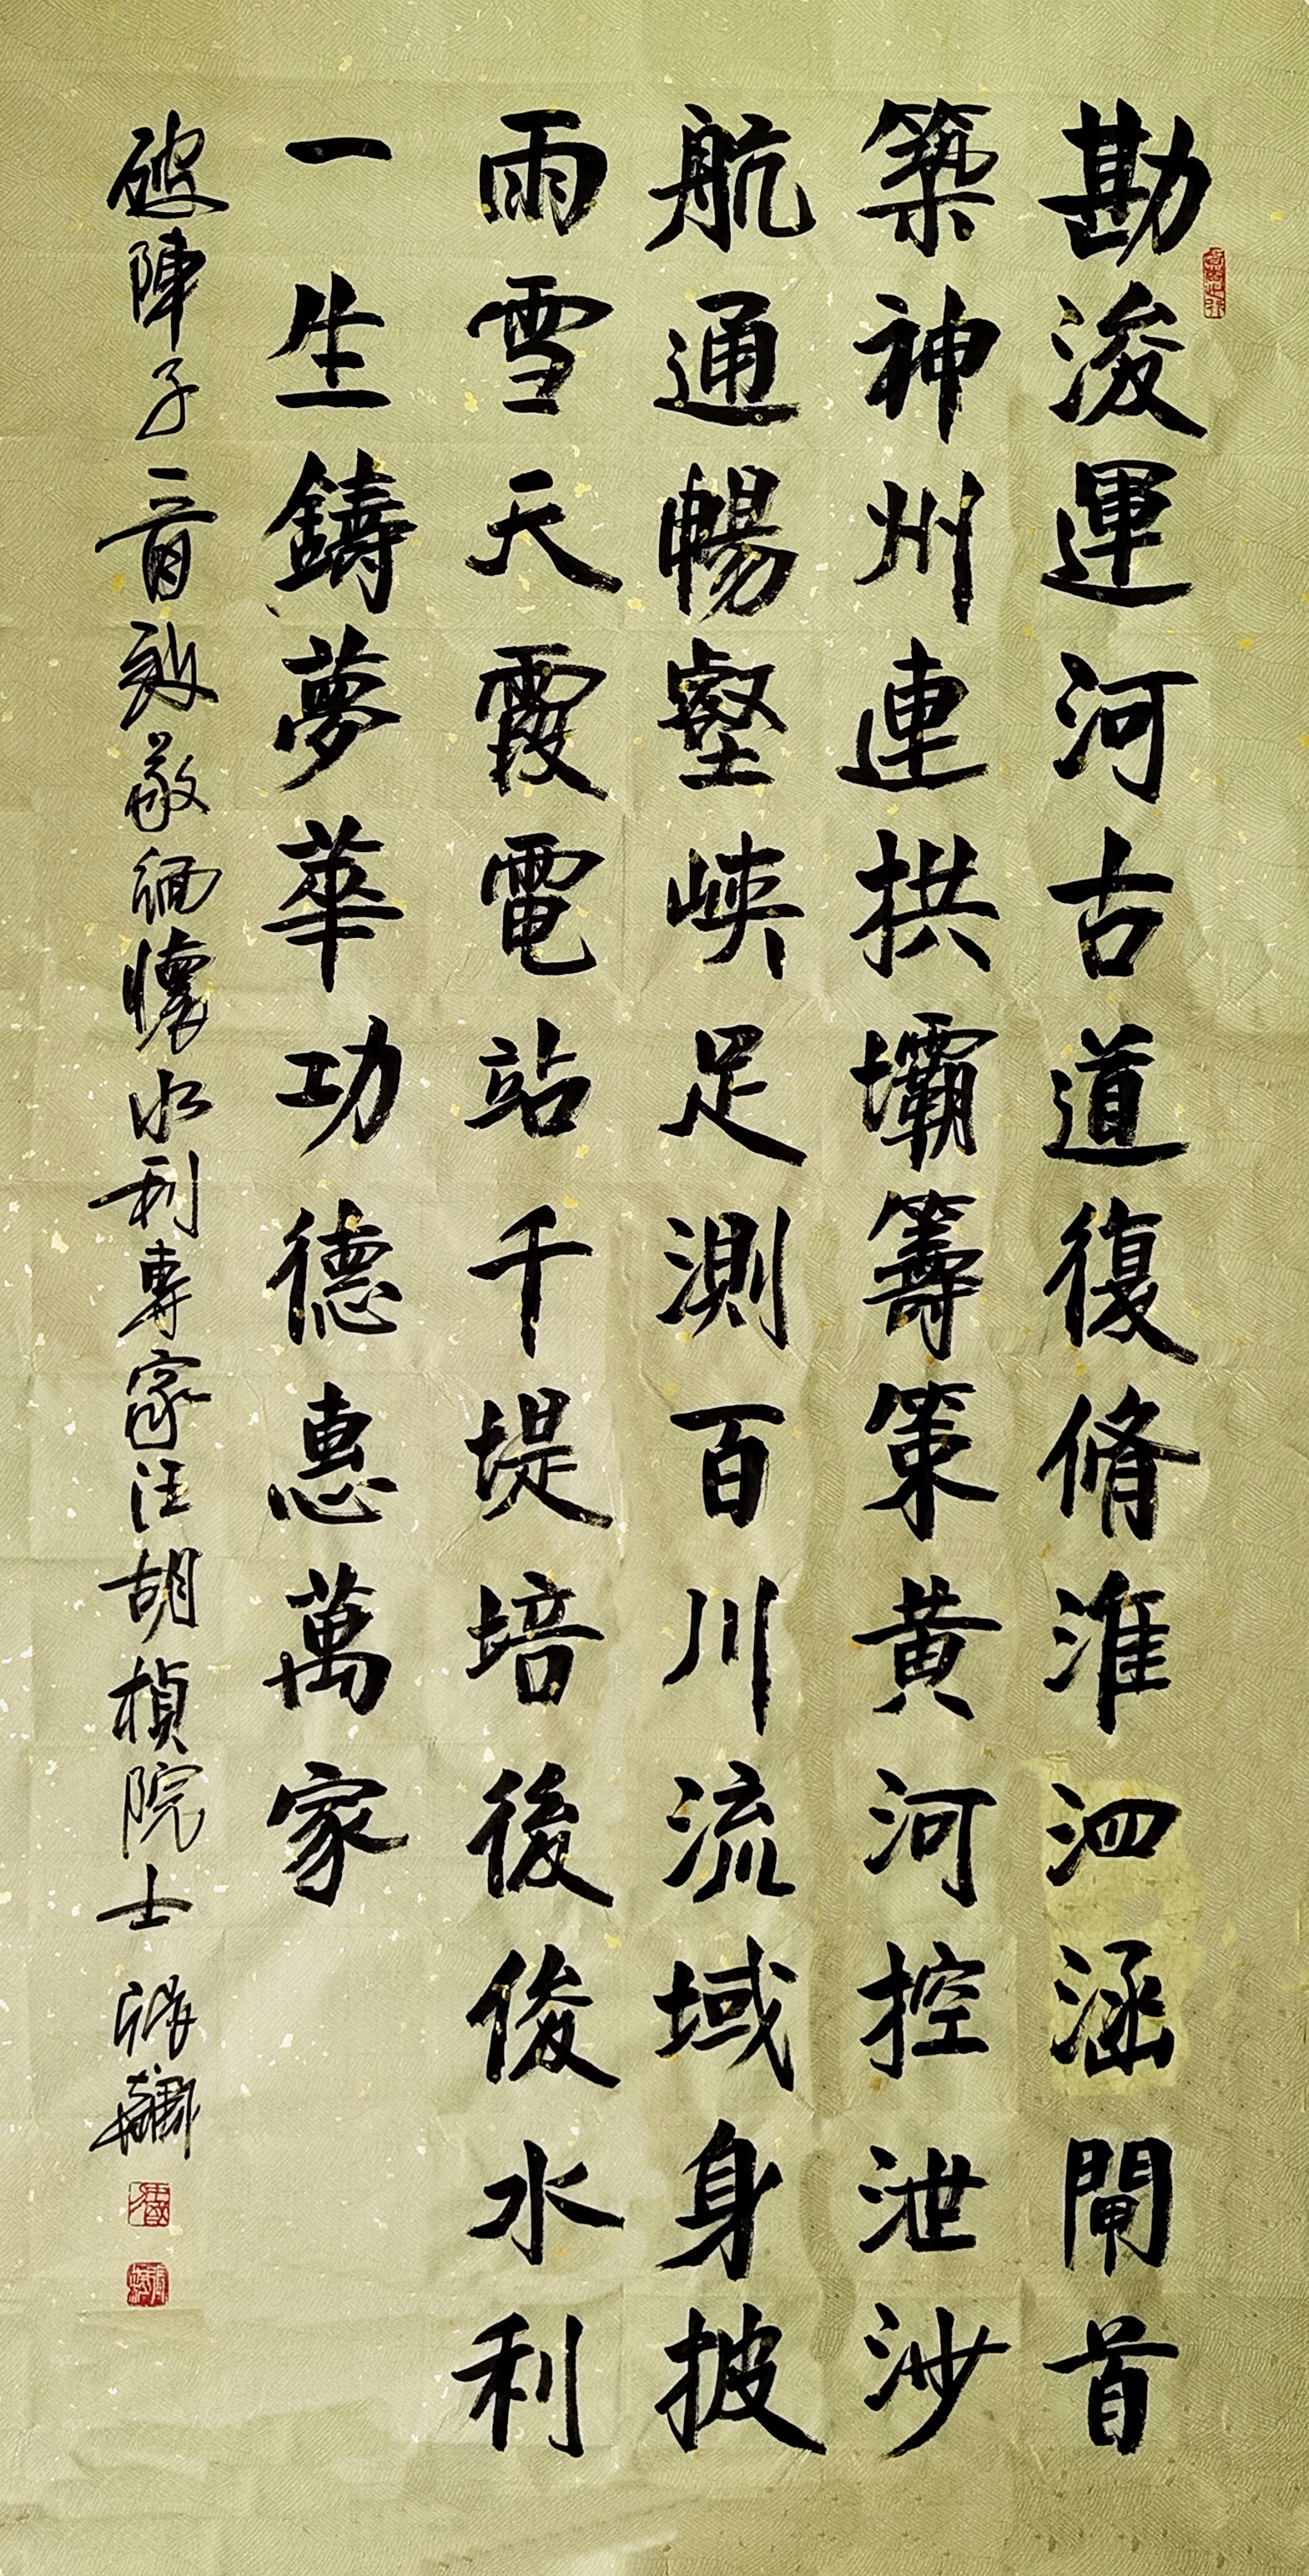 勘浚運河古道復脩淮泗涵閘首
築神州連拱壩籌策黄河控泄沙
航通暢壑峽足測百川流域身披
雨雪天霞電站千堤培後俊水利
一生鑄夢華功德惠萬家
破陣子一首致敬緬懷水利專家汪胡楨院士 張